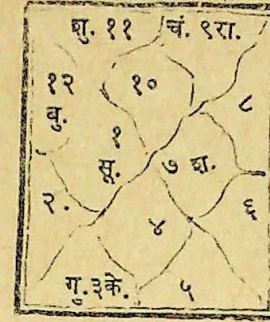 शु. ११ चं. ९रा.
१२ १० ८
बु.
१
सू. ७ श.
२. ४ ६
गु. ३के. ५